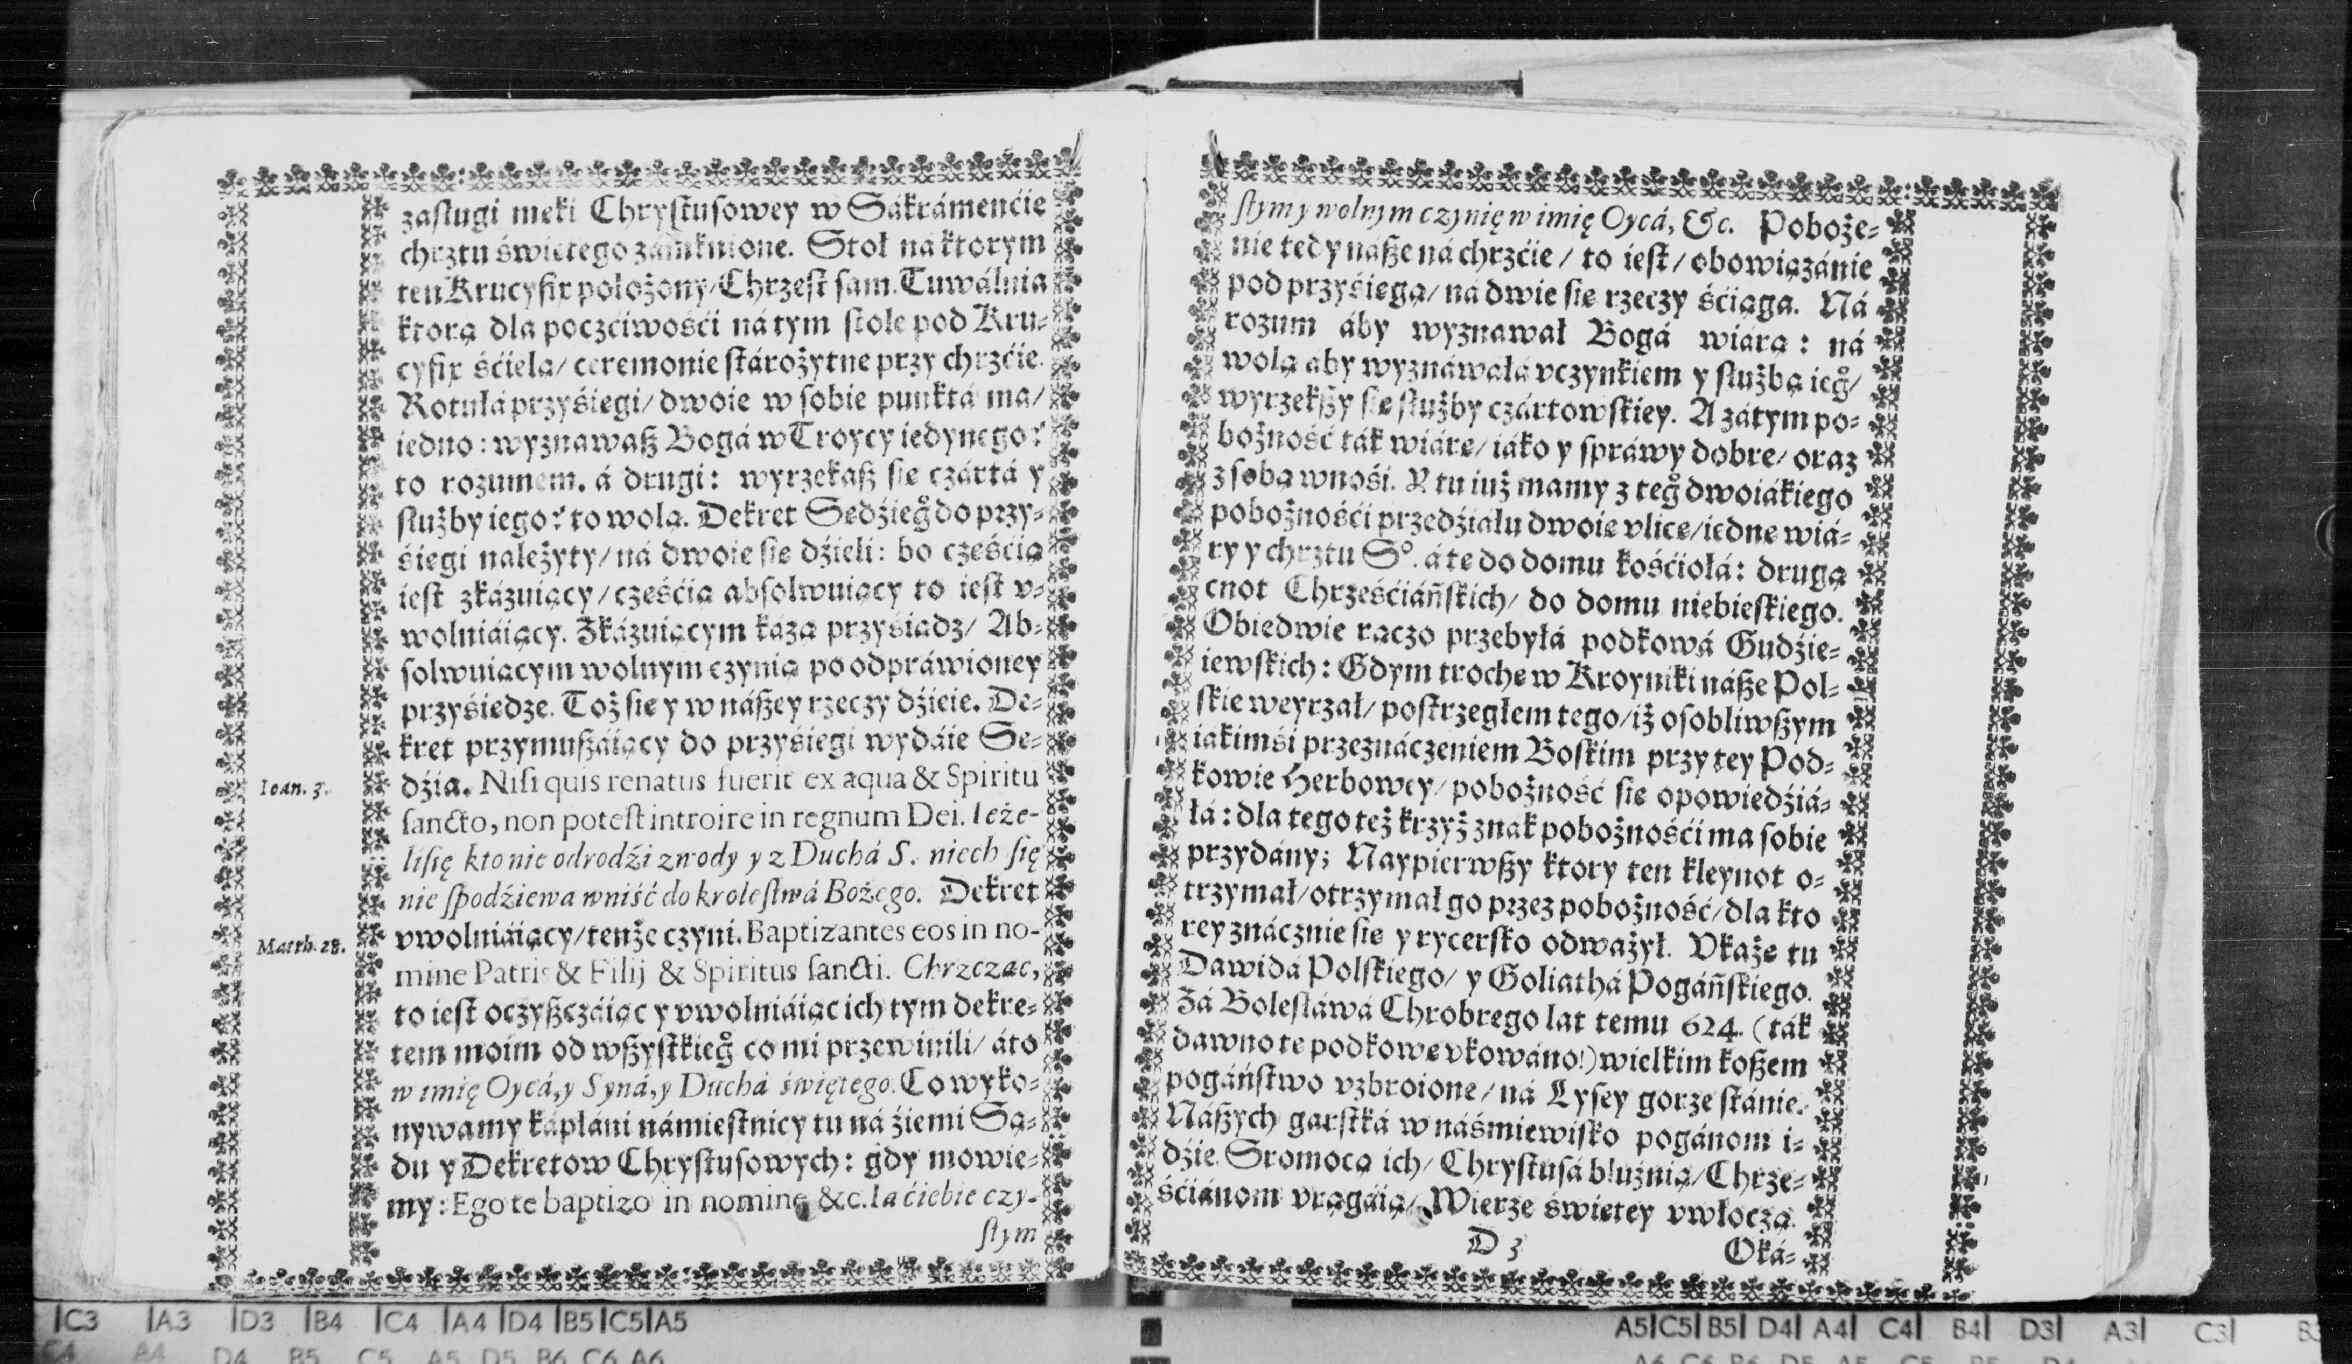 zasługi męki Chrystusowey w Sákrámenćie
chrztu świętego zámknione. Stoł ná ktorym
ten Krucyfix położony/ Chrzest sam. Tuwálnia
ktorą dla poczćiwośći ná tym stole pod Kru-
cyfix śćielą/ ceremonie stárożytne przy chrzćie.
Rotułá przyśięgi/ dwoie w sobie punktá ma/
iedno: wyznawasz Bogá w Troycy iedynego?
to rozumem. á drugi: wyrzekasz się czártá y
służby iego? to wolą. Dekret Sędźieg° do przy-
śięgi należyty/ ná dwoie się dźieli: bo częśćią
iest zkázuiący/ częśćią absolwuiący to iest v-
wolniáiący. Zkázuiącym każą przyśiądz/ Ab-
solwuiącym wolnym czynią po odpráwioney
przyśiędze. Toż się y w nászey rzeczy dźieie. De-
kret przymuszáiący do przyśięgi wydáie Sę-
dźia. Nisi quis renatus fuerit ex aqua & Spiritu
Ioan. 3.
sancto, non potest introire in regnum Dei. Ieże-
li się kto nie odrodźi z wody y z Duchá S. niech się
nie spodźiewa wniść do krolestwá Bożego. Dekret
vwolniáiący/ tenże czyni. Baptizantes eos in no-
Matth. 28.
mine Patris & Filij & Spiritus sancti. Chrzcząc,
to iest oczyszczáiąc y vwolniáiąc ich tym dekre-
tem moim od wszystkieg° co mi przewinili/ á to
w imię Oycá, y Syná, y Duchá świętego. Co wyko-
nywamy kápłáni námiestnicy tu ná źiemi Są-
du y Dekretow Chrystusowych: gdy mowie-
my: Ego te baptizo in nomine &c. Ia ćiebie czy-
stym
stym y wolnym czynię w imię Oycá, &c. Poboże-
nie tedy násze ná chrzćie/ to iest/ obowiązánie
pod przyśięgą/ ná dwie się rzeczy śćiąga. Ná
rozum áby wyznawał Bogá wiárą: ná
wolą aby wyznáwałá vczynkiem y służbą ieg°/
wyrzekszy się służby czártowskiey. A zátym po-
bożność ták wiárę/ iáko y spráwy dobre/ oraz
z sobą wnośi. A tu iuż mamy z teg° dwoiákiego
pobożnośći przedźiału dwoie vlice/ iednę wiá-
ry y chrztu S°. á tę do domu kośćiołá: drugą
cnot Chrześćiáńskich/ do domu niebieskiego.
Obiedwie rączo przebyłá podkowá Gudźie-
iewskich: Gdym trochę w Kroyniki násze Pol-
skie weyrzał/ postrzegłem tego/ iż osobliwszym
iákimśi przeznáczeniem Boskim przy tey Pod-
kowie Herbowey/ pobożność się opowiedźiá-
łá: dla tego też krzyż znak pobożnośći ma sobie
przydány; Naypierwszy ktory ten kleynot o-
trzymał/ otrzymał go przez pobożność/ dla kto
rey znácznie się y rycersko odważył. Vkażę tu
Dawidá Polskiego/ y Goliathá Pogáńskiego.
Zá Bolesłáwá Chrobrego lat temu 624. (ták
dawno tę podkowę vkowáno!) wielkim koszem
pogáństwo vzbroione/ ná Łysey gorze stánie.
Nászych garstká w náśmiewisko pogánom i-
dźie. Sromocą ich/ Chrystusá bluźnią/ Chrze-
śćiánom vrągáią/ Wierze świętey vwłoczą.
D 3 Oká-
C3 A3 D3 B4 C4 A4 D4 B5 C5 A5
A5 C5 B5 D4 A4 C4 B4 D3 A3 C3 B3
C4 A4 D4 B5 C5 A5 D5 B6 C6 A6